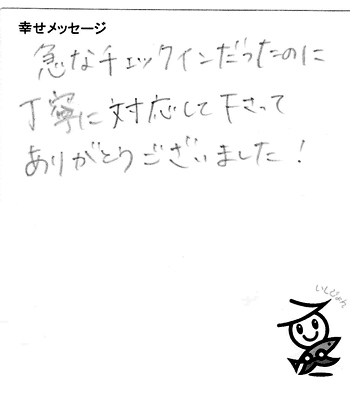 幸せメッセージ
急なチェックインだったのに
丁寧に対応して下さって
ありがとうございました！
いしぴょん